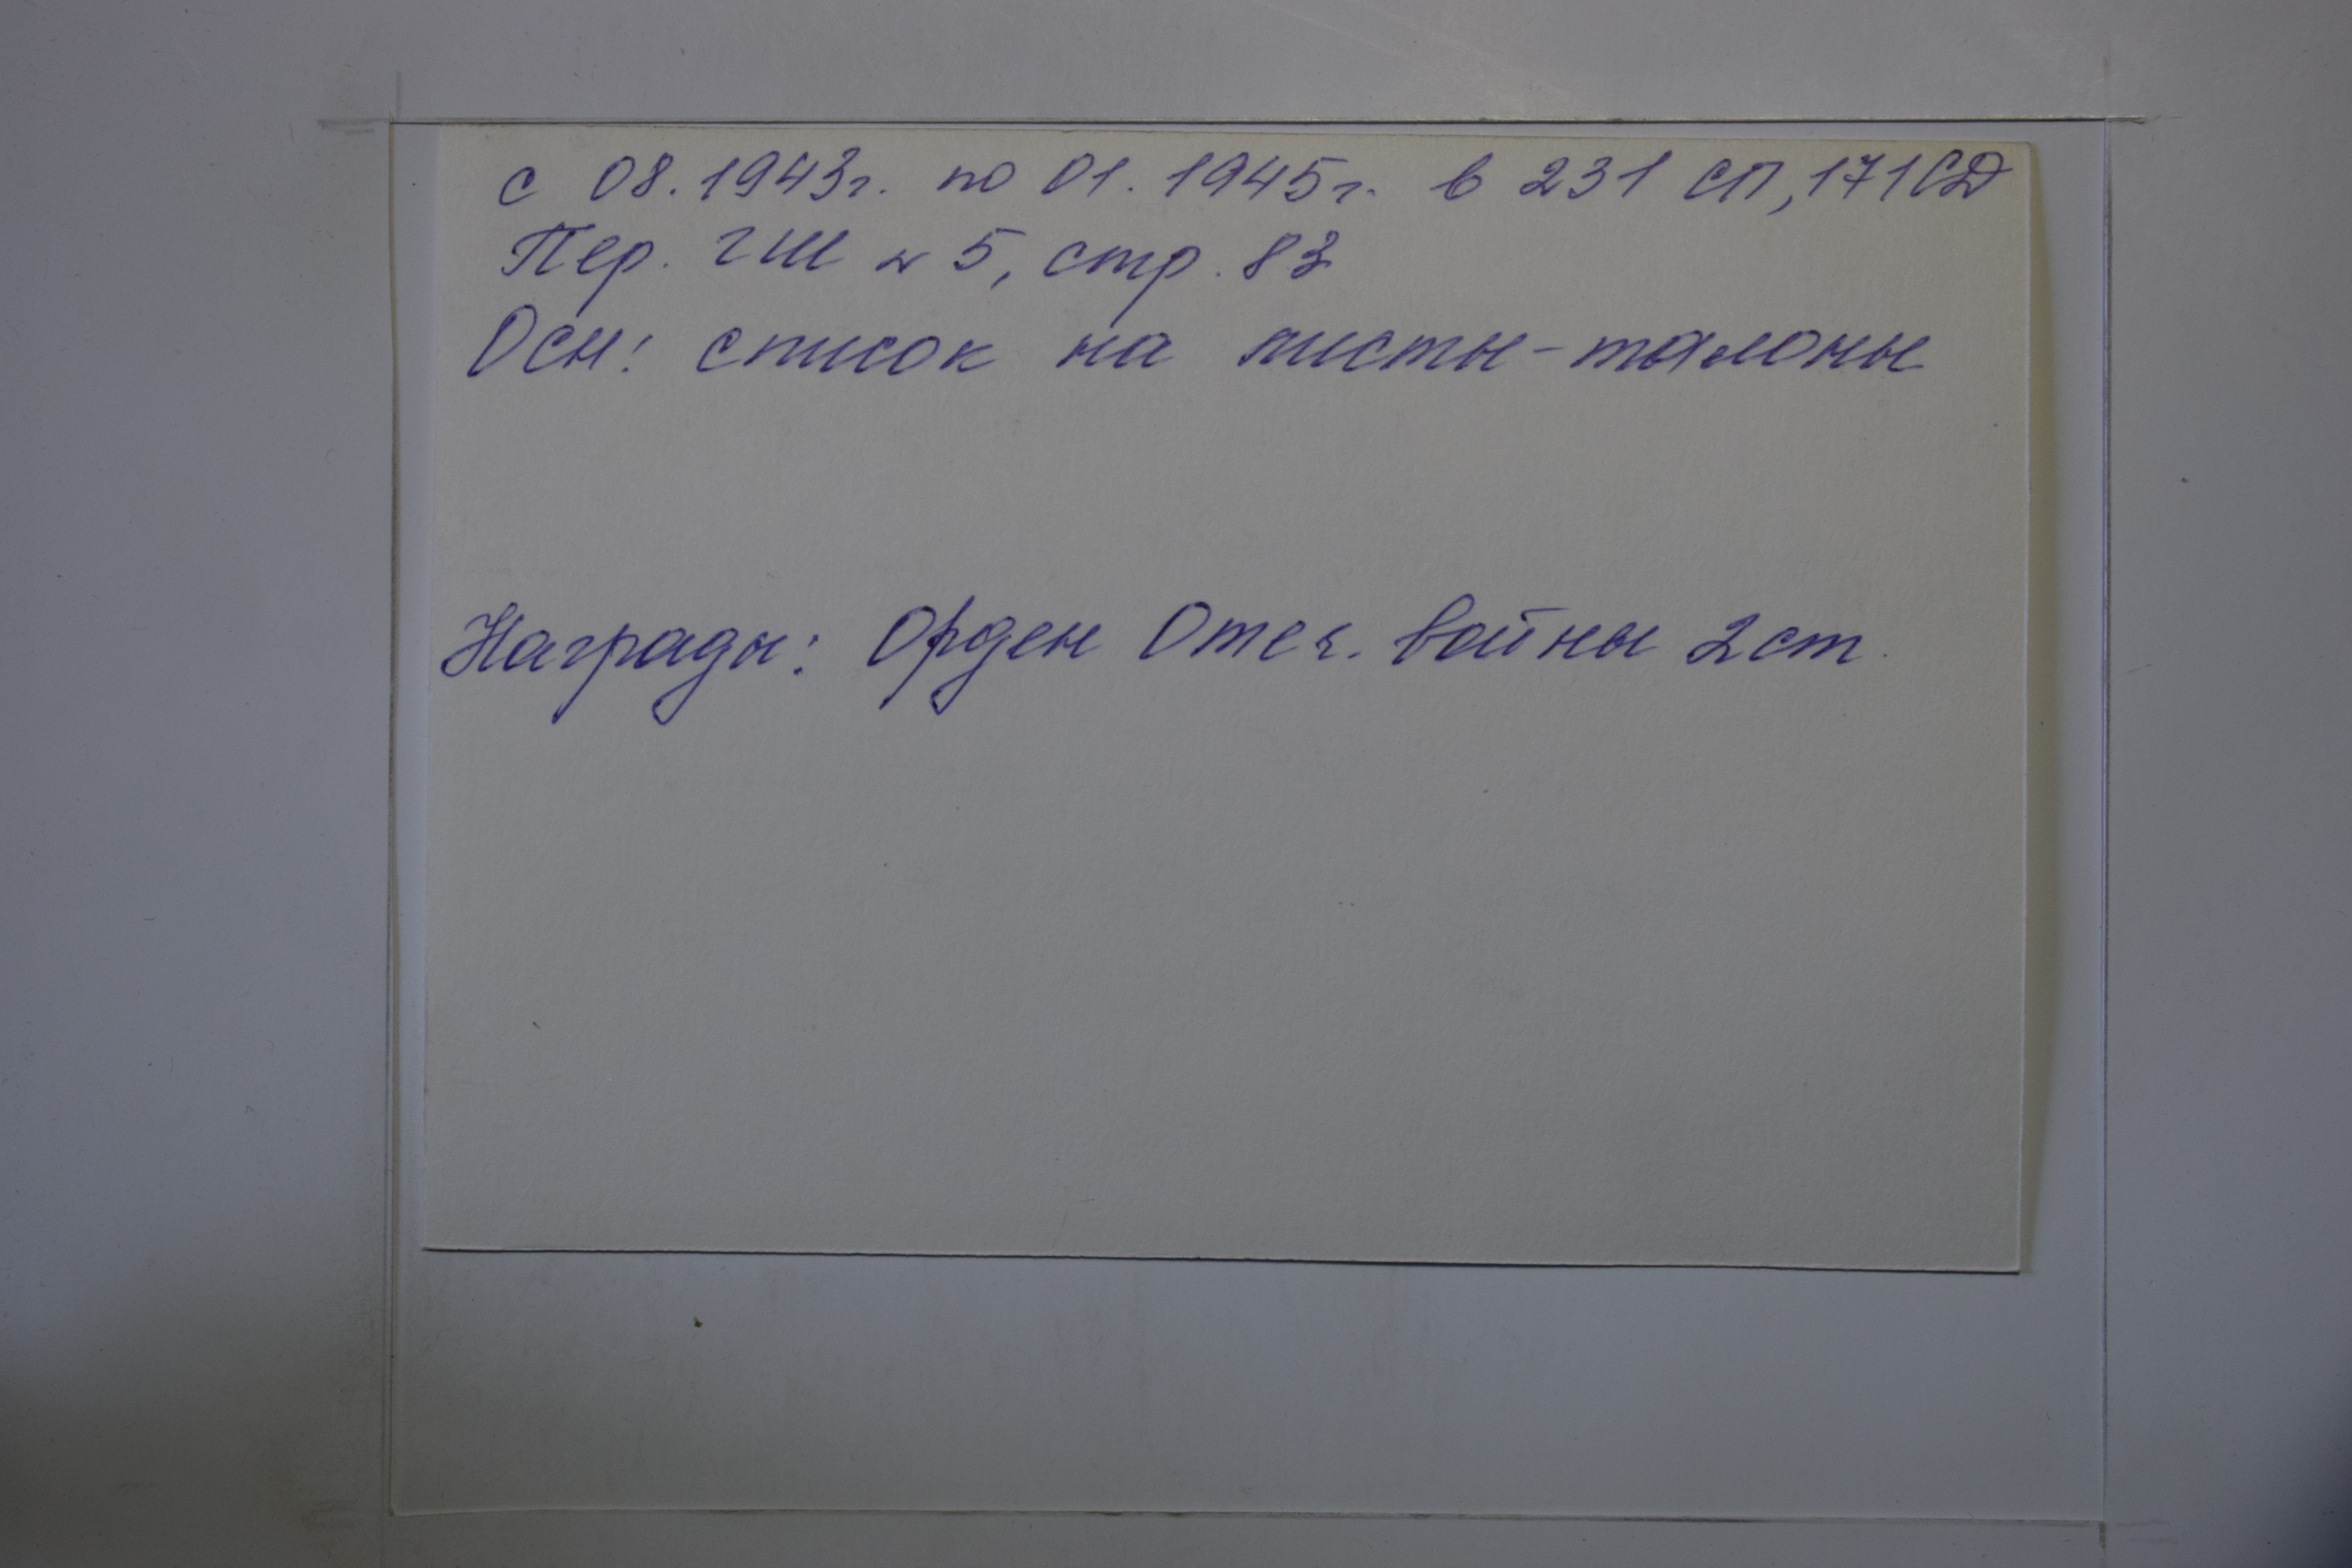 с 08.1943г. по 01.1945г. в 231 СП, 171СД
Пер. ГШ № 5, стр. 83
Осн: список на листы-талоны
Награды: Орден Отеч. войны 2ст.